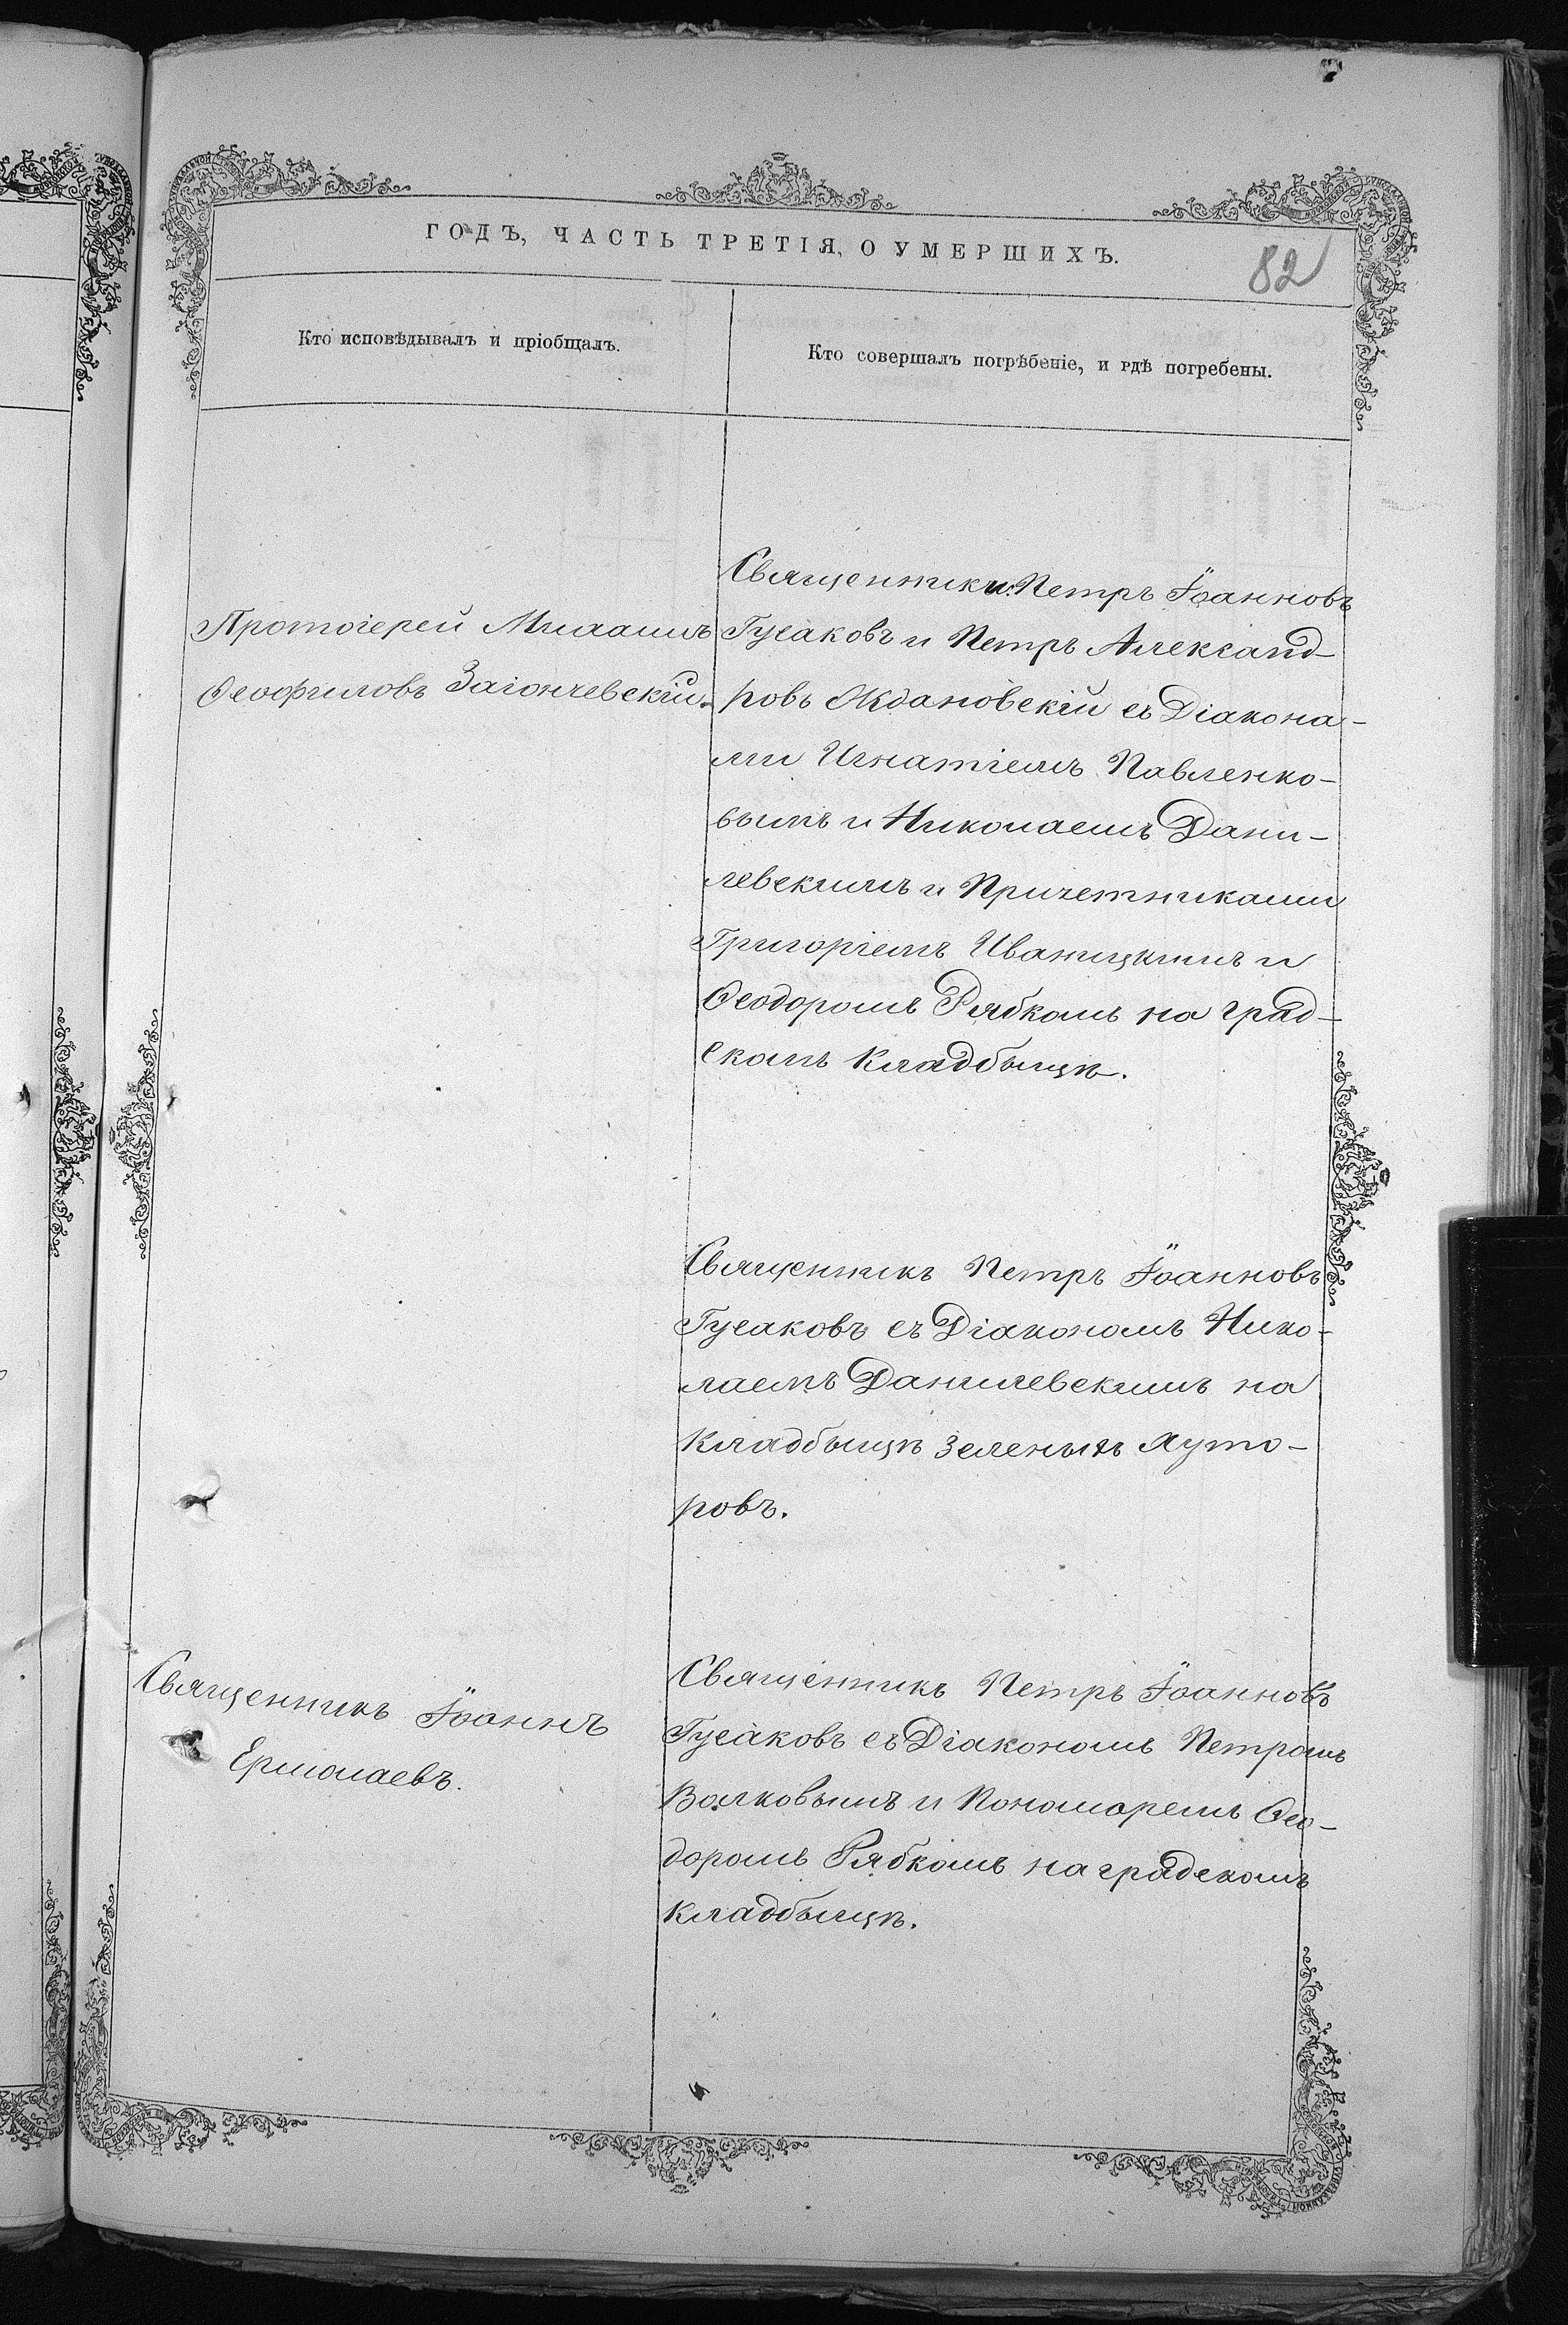 ГОДЪ, ЧАСТЬ ТРЕТІЯ, О УМЕРШИХЪ.
82
Кто исповѣдывалъ и пріобщалъ.
Кто совершалъ погрѣбеніе, и гдѣ погребены.
Протоіерей Мисаилъ
Ѳеофиловъ Загончевскій.
Священники Петръ Іоанновъ
Гусаковъ и Петръ Александ-
ровъ Ждановскій съ Діакона-
ми Игнатіемъ Павленко-
вымъ и Николаемъ Дани-
левскимъ и Причетниками
Григоріемъ Иваницкимъ и
Ѳеодоромъ Рябкомъ на град-
скомъ кладбыщѣ.
Священникъ Петръ Іоанновъ
Гусаковъ съ Діакономъ Нико-
лаемъ Данилевскимъ на
кладбыщѣ Зеленыхъ Хуто-
ровъ.
Священникъ Іоаннъ
Ермолаевъ.
Священникъ Петръ Іоанновъ
Гусаковъ съ Діакономъ Петромъ
Волковымъ и Пономаремъ Ѳео-
доромъ Рябкомъ на градскомъ
кладбыщѣ.